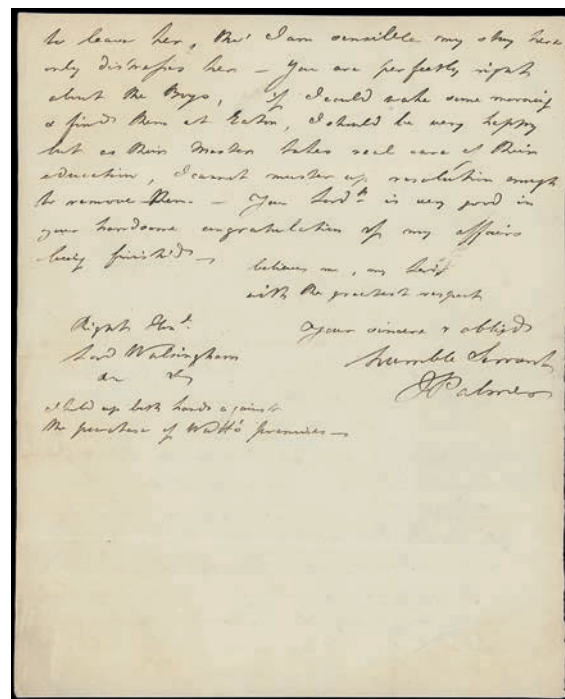 to leave her, tho' I am sensible my stay here
only distresses her – You are perfectly right
about the Boys, if I could wake some morning
& find them at Eaton, I should be very happy
but as their Master takes real care of their
education, I cannot muster up resolution enough
to remove them – Your Lordp is very good in
your handsome congratulation of my affairs
being finished –
believe me, my Lord
with the greatest respect
Your sincere & obliged
humble Servant
J Palmer
Right Honl.
Lord Walsingham
I hold up both hands against
the purchase of Watt's premises –